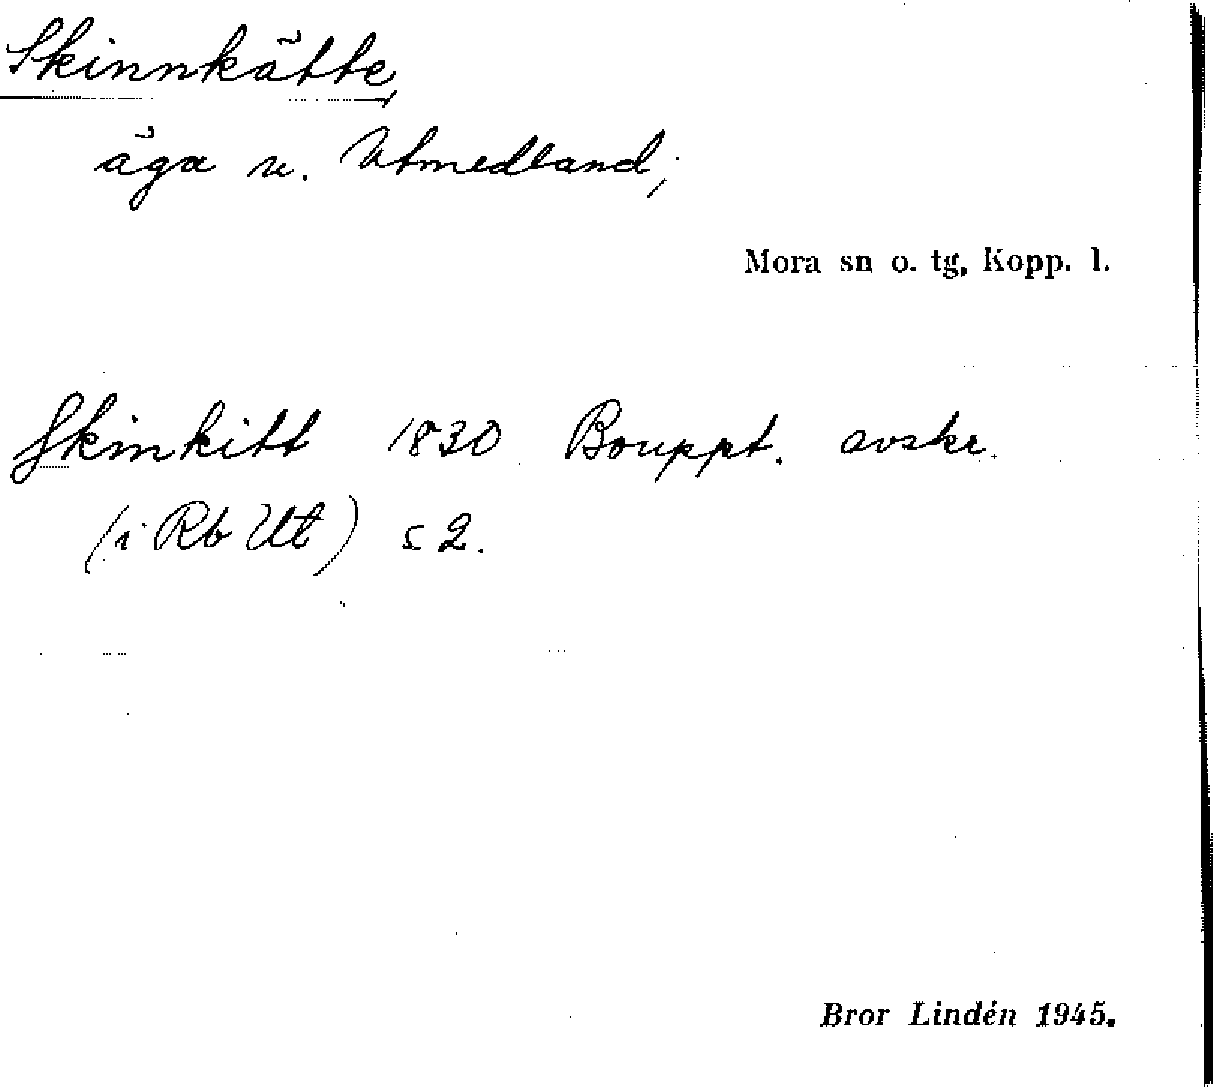 Skinnkätte,
äga v. Utmedland;
Mora sn o. tg, Kopp. l.
Skinkitt 1830 Bouppt. avskr.
(i Rb Ut) s 2.
Bror Lindén 1945.